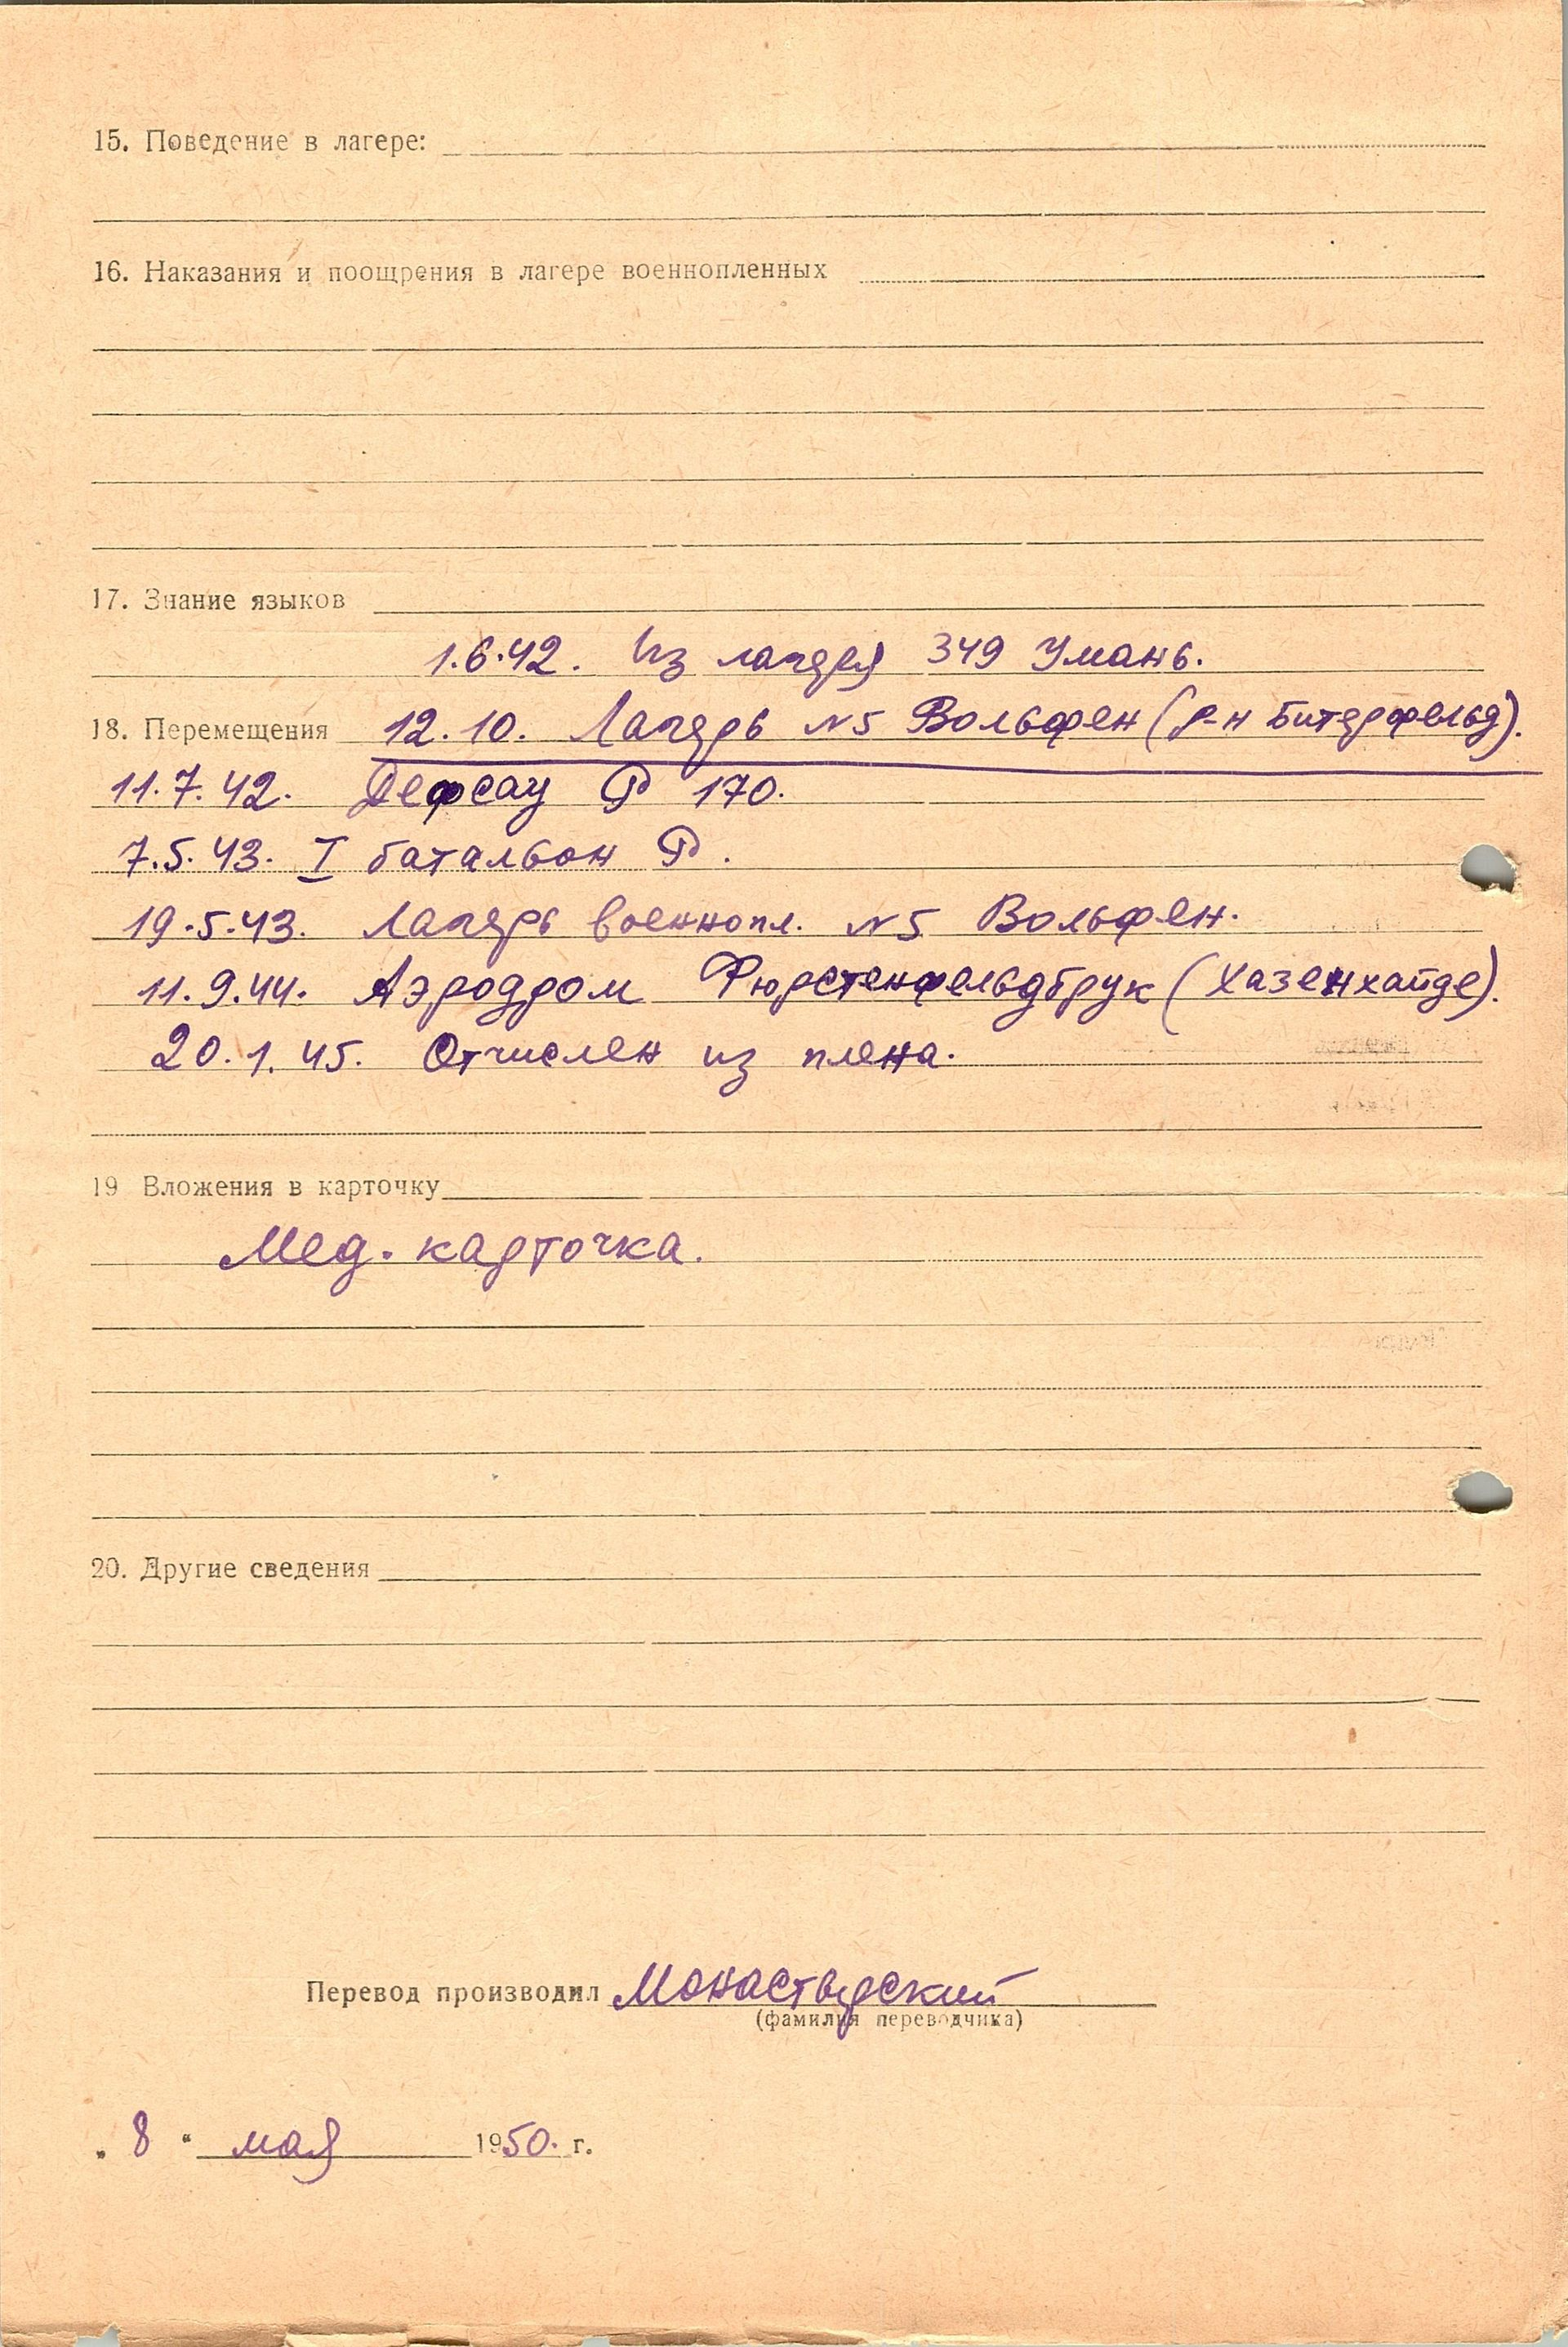 15. Поведение в лагере:
16. Наказания и поощрения в лагере военнопленных
17. Знание языков
1.6.42. Из лагеря 349 Умань.
18. Перемещения 12.10. Лагерь №5 Вольфен (р-н Битерфельд).
11.7.42. Дефсау Р 170.
7.5.43. I батальон Р.
19.5.43. Лагерь военнопл. №5 Вольфен.
11.9.44. Аэродром Фюрстенфельдбрук (Хазенхайде).
20.1.45. Отчислен из плена.
19 Вложения в карточку
Мед. карточка.
20. Другие сведения
Перевод производил Монастырский
(фамилия переводчика)
„ 8 “ мая 1950. г.